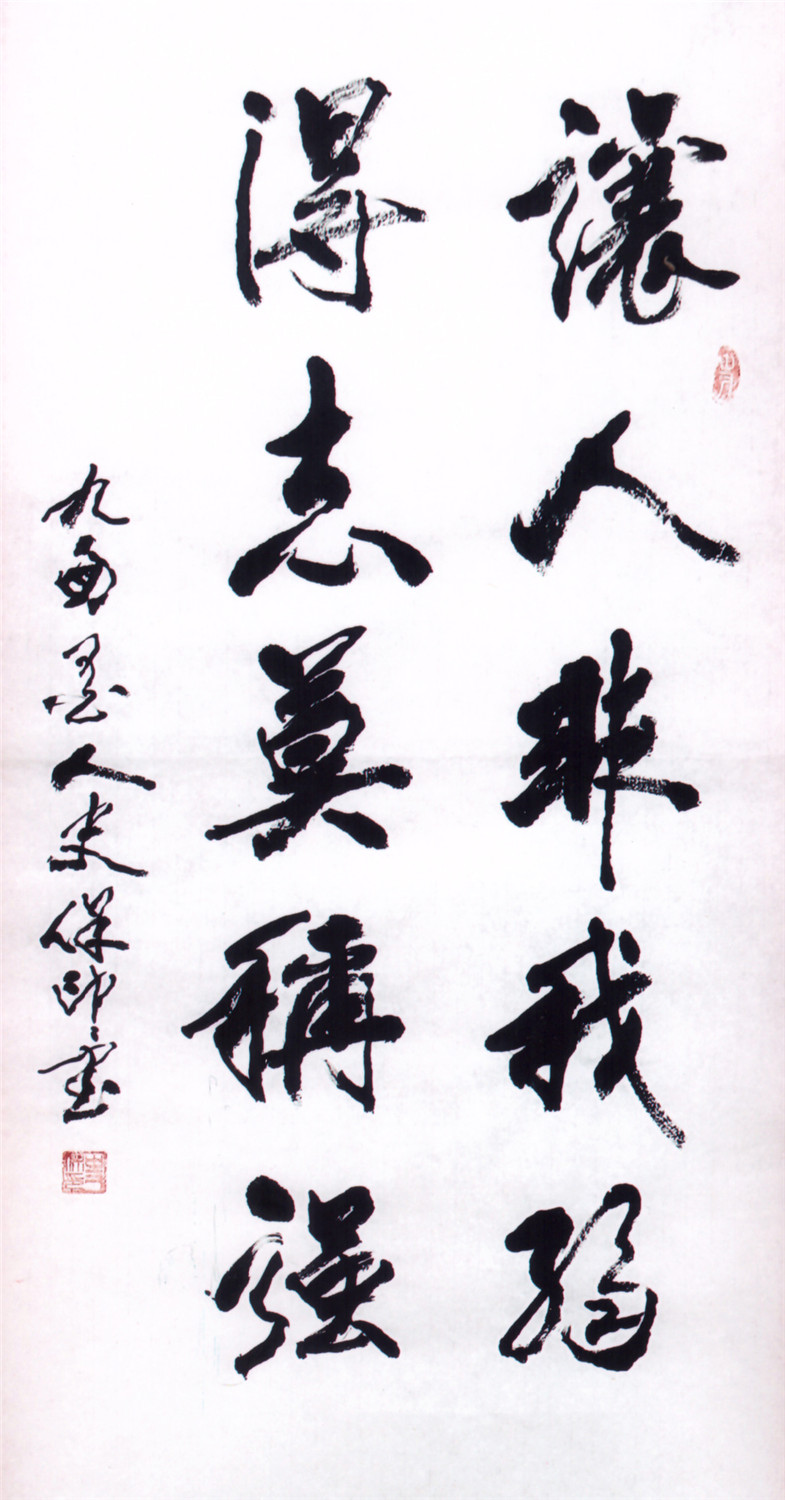 讓人非我弱
得志莫稱强
九人史保印書